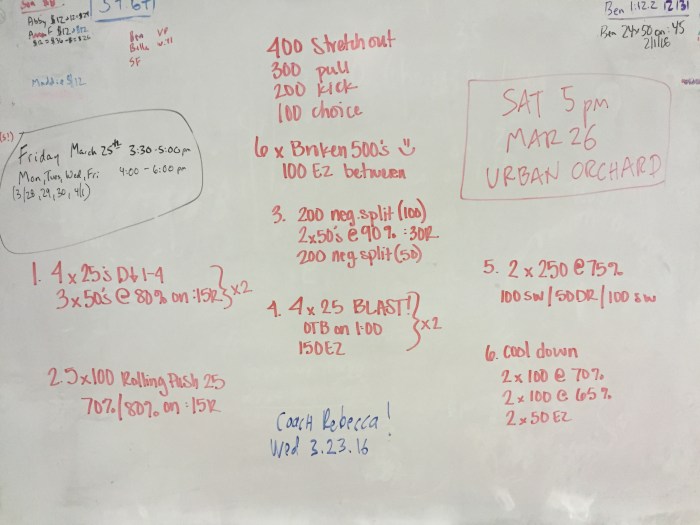 Ben 1:12.2 12/31
Ben 24x50 on :45
2/1/16
Ben VP
Bella will
SF
Maddie $12
400 Stretch out
300 pull
200 kick
100 choice
SAT 5 pm
MAR 26
URBAN ORCHARD
Friday March 25th 3:30-5:00pm
Mon, Tues, Wed, Fri 4:00-6:00pm
(3/28, 29, 30, 4/1)
6 x Broken 500's
100 EZ between
1. 4 x 25's D↓1-4
3 x 50's @ 80% on :15R } x2
2. 5x100 Rolling Push 25
70%/80% on :15R
3. 200 neg. split (100)
2x50's @ 90% :30R
200 neg. split (50)
4. 4 x 25 BLAST!
OTB on 1:00
150 EZ
} x2
5. 2 x 250 @ 75%
100 SW/50DR/100 SW
6. Cool down
2 x 100 @ 70%
2 x 100 @ 65%
2 x 50 EZ
Coach Rebecca!
Wed 3.23.16